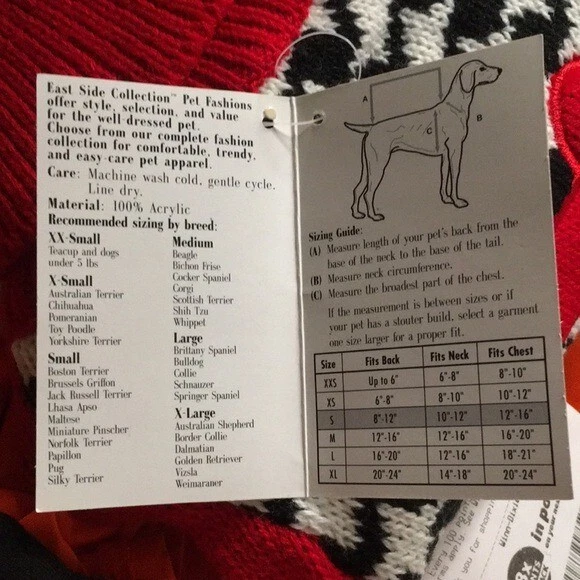 East Side Collection™ Pet Fashions
offer style, selection, and value
for the well-dressed pet.
Choose from our complete fashion
collection for comfortable, trendy,
and easy-care pet apparel.
Care: Machine wash cold, gentle cycle.
Line dry.
Material: 100% Acrylic
Recommended sizing by breed:
XX-Small
Teacup and dogs
under 5 lbs
X-Small
Australian Terrier
Chihuahua
Pomeranian
Toy Poodle
Yorkshire Terrier
Small
Boston Terrier
Brussels Griffon
Jack Russell Terrier
Lhasa Apso
Maltese
Miniature Pinscher
Norfolk Terrier
Papillon
Pug
Silky Terrier
Medium
Beagle
Bichon Frise
Cocker Spaniel
Corgi
Scottish Terrier
Shih Tzu
Whippet
Large
Brittany Spaniel
Bulldog
Collie
Schnauzer
Springer Spaniel
X-Large
Australian Shepherd
Border Collie
Dalmatian
Golden Retriever
Vizsla
Weimaraner
A
B
C
Sizing Guide:
(A) Measure length of your pet's back from the
base of the neck to the base of the tail.
(B) Measure neck circumference.
(C) Measure the broadest part of the chest.
If the measurement is between sizes or if
your pet has a stouter build, select a garment
one size larger for a proper fit.
Size Fits Back Fits Neck Fits Chest
XXS Up to 6" 6"-8" 8"-10"
XS 6"-8" 8"-10" 10"-12"
S 8"-12" 10"-12" 12"-16"
M 12"-16" 12"-16" 16"-20"
L 16"-20" 12"-16" 18"-21"
XL 20"-24" 14"-18" 20"-24"
you for shopping
in